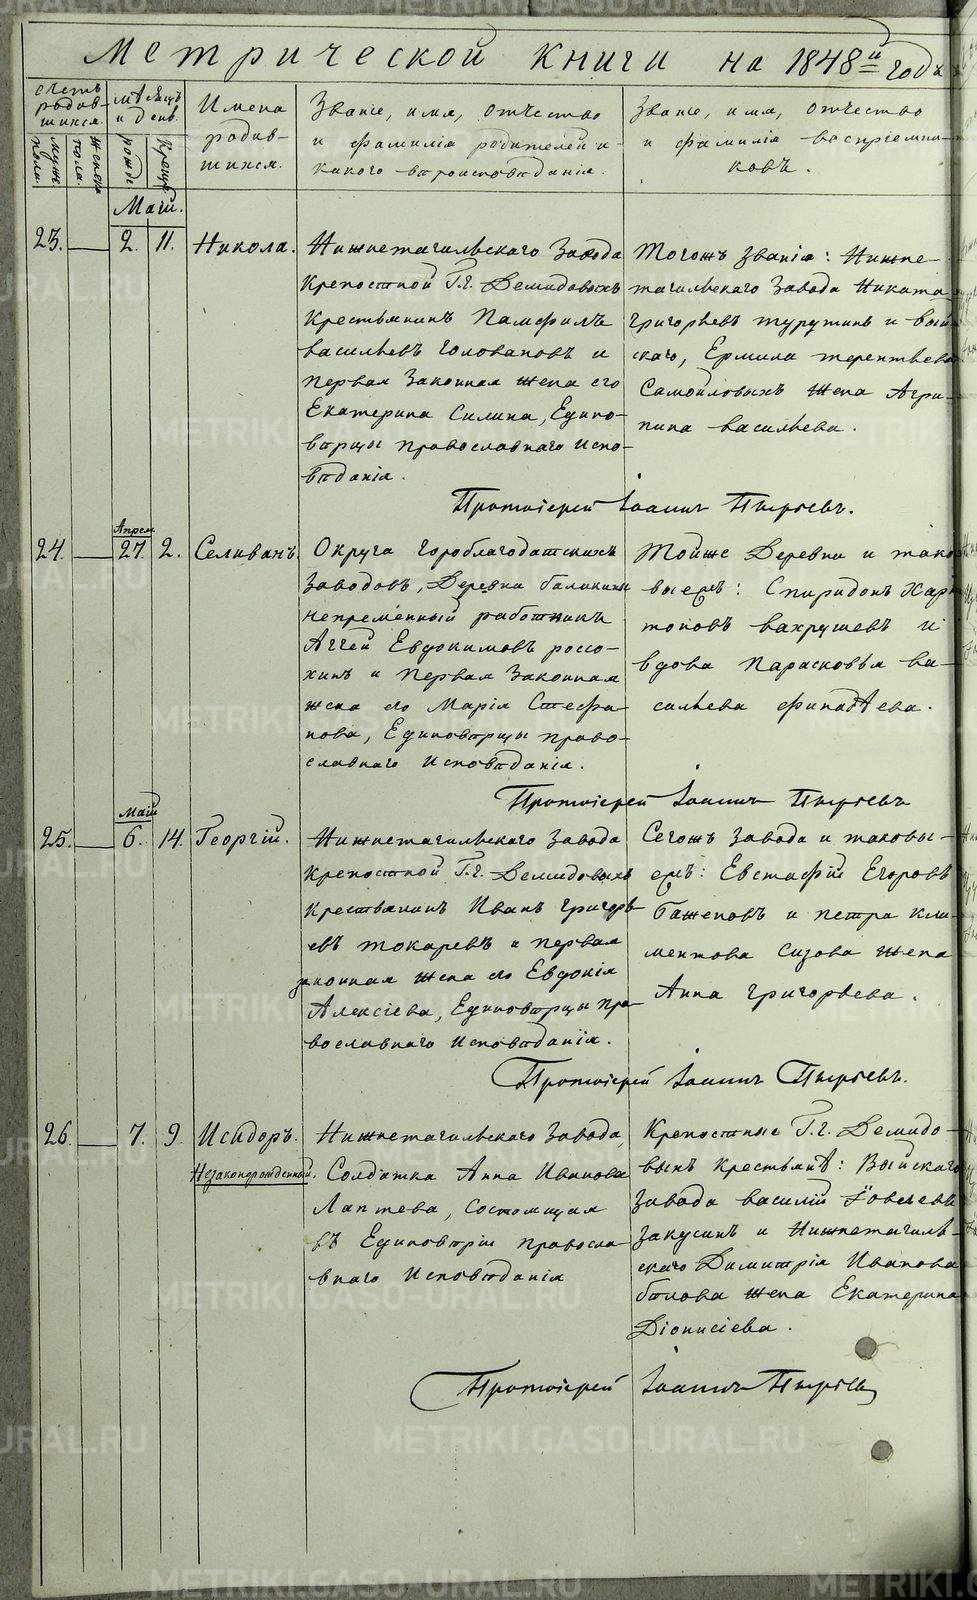 Метрической книги на 1848й годъ
Счетъ родив-шихся.
мужеска пола.
женска пола.
Мѣсяцъ и день.
рожде
Креще
Имена родив-шихся.
Званіе, имя, отчество
и фамилія родителей и
какого вѣроисповѣданія.
Званіе, имя, отчество
и фамилія воспріемни-
ковъ.
Май.
23. 2. 11. Никола.
Нижнетагильскаго Завода
Крепостной Г.г. Демидовыхъ
Крестьянинъ Памфилъ
васильевъ Головановъ и
первая Законная жена его
Екатерина Силина, Едино-
вѣрцы православнаго Испо-
вѣданія.
Тогожъ Званія: Нижне-
тагильскаго Завода Никита
григорьевъ Турутинъ и вый
скаго, Ермила терентьева
Самойловыхъ жена Агри-
пина васильева.
Протоіерей Іоаннъ Пырьевъ.
Апреля
24. 27. 2. Селиванъ.
Округа Гороблагодатскихъ
Заводовъ, Деревни Балакины
непременный работникъ
Аггей Евдокимовъ россо-
хинъ и Первая Законная
жена его Марія Стефа-
нова, Единовѣрцы право-
славнаго Исповѣданія.
Тойже Деревни и тако
выежъ: Спиридонъ Хари
тоновъ вахрушевъ и
вдова Парасковья ва-
сильева финадѣева.
Протоіерей Іоаннъ Пырьевъ
Май
25. 6. 14. Георгій.
Нижнетагильскаго Завода
Крепостной Г.г. Демидовыхъ
Крестьянинъ Иванъ григорь
евъ токаревъ и первая
законная жена его Евдокія
Алексіева, Единовѣрцы пра
вославнаго Исповѣданія.
Сегожъ завода и таковы-
ежъ: Евстафій Егоровъ
Баженовъ и петра кли-
ментова сизова жена
Анна григорьева.
Протоіерей Іоаннъ Пырьевъ.
26. 7. 9. Исидоръ.
Незаконорожденный.
Нижнетагильскаго Завода,
Солдатка Анна Иванова
Лаптева, состоящая
въ Единовѣріи правосла
внаго Исповѣданія
Крепостные Г.г. Демидо-
выхъ крестьянѣ: Выйскаго
завода василій Іовлевъ
Закусинъ и Нижнетагиль-
скаго Димитрія Иванова
бѣлова жена Екатерина
Діонисіева.
Протоіерей Іоаннъ Пырьевъ
METRIKI.GASO-URAL.RU